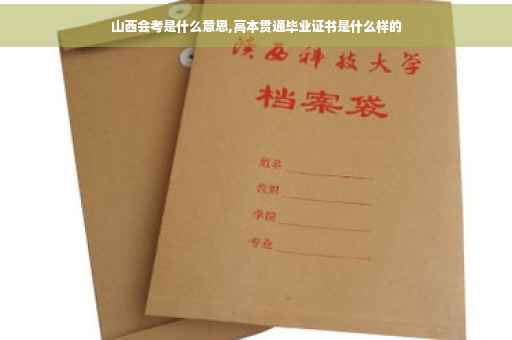 山西会考是什么意思,高本贯通毕业证书是什么样的
陕西科技大学
档案袋
姓名
学院
专业